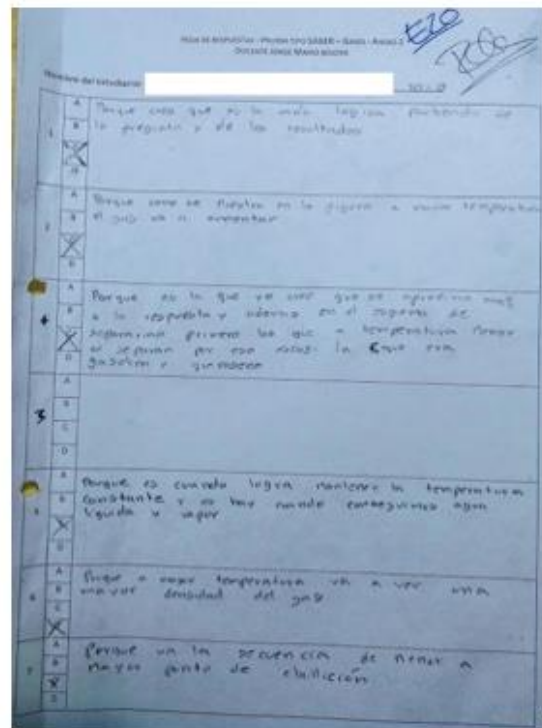 HOJA DE RESPUESTAS - PRUEBA TIPO SABER - GASES - ANEXO 2
DOCENTE JORGE MARIO
Nombre del Estudiante:
1
A
B
D
Porque creo que es la más lógica partiendo de
la pregunta y de los resultados
2
A
B
D
Porque como se muestra en la figura a mayor temperatura
el gas va a aumentar
A
B
D
Porque es la que yo creo que se aproxima mas
a la respuesta y además en el
primero los que a temperatura menor
se separan por eso la que era
gasolina y
3
A
B
C
D
A
B
D
Porque es cuando logra mantener la temperatura
constante y es hay cuando conseguimos agua
liquida y vapor
6
A
B
C
Porque a mayor temperatura va a ver una
mayor densidad del gas
7
A
B
D
Porque va la secuencia de menor a
mayor punto de ebullición